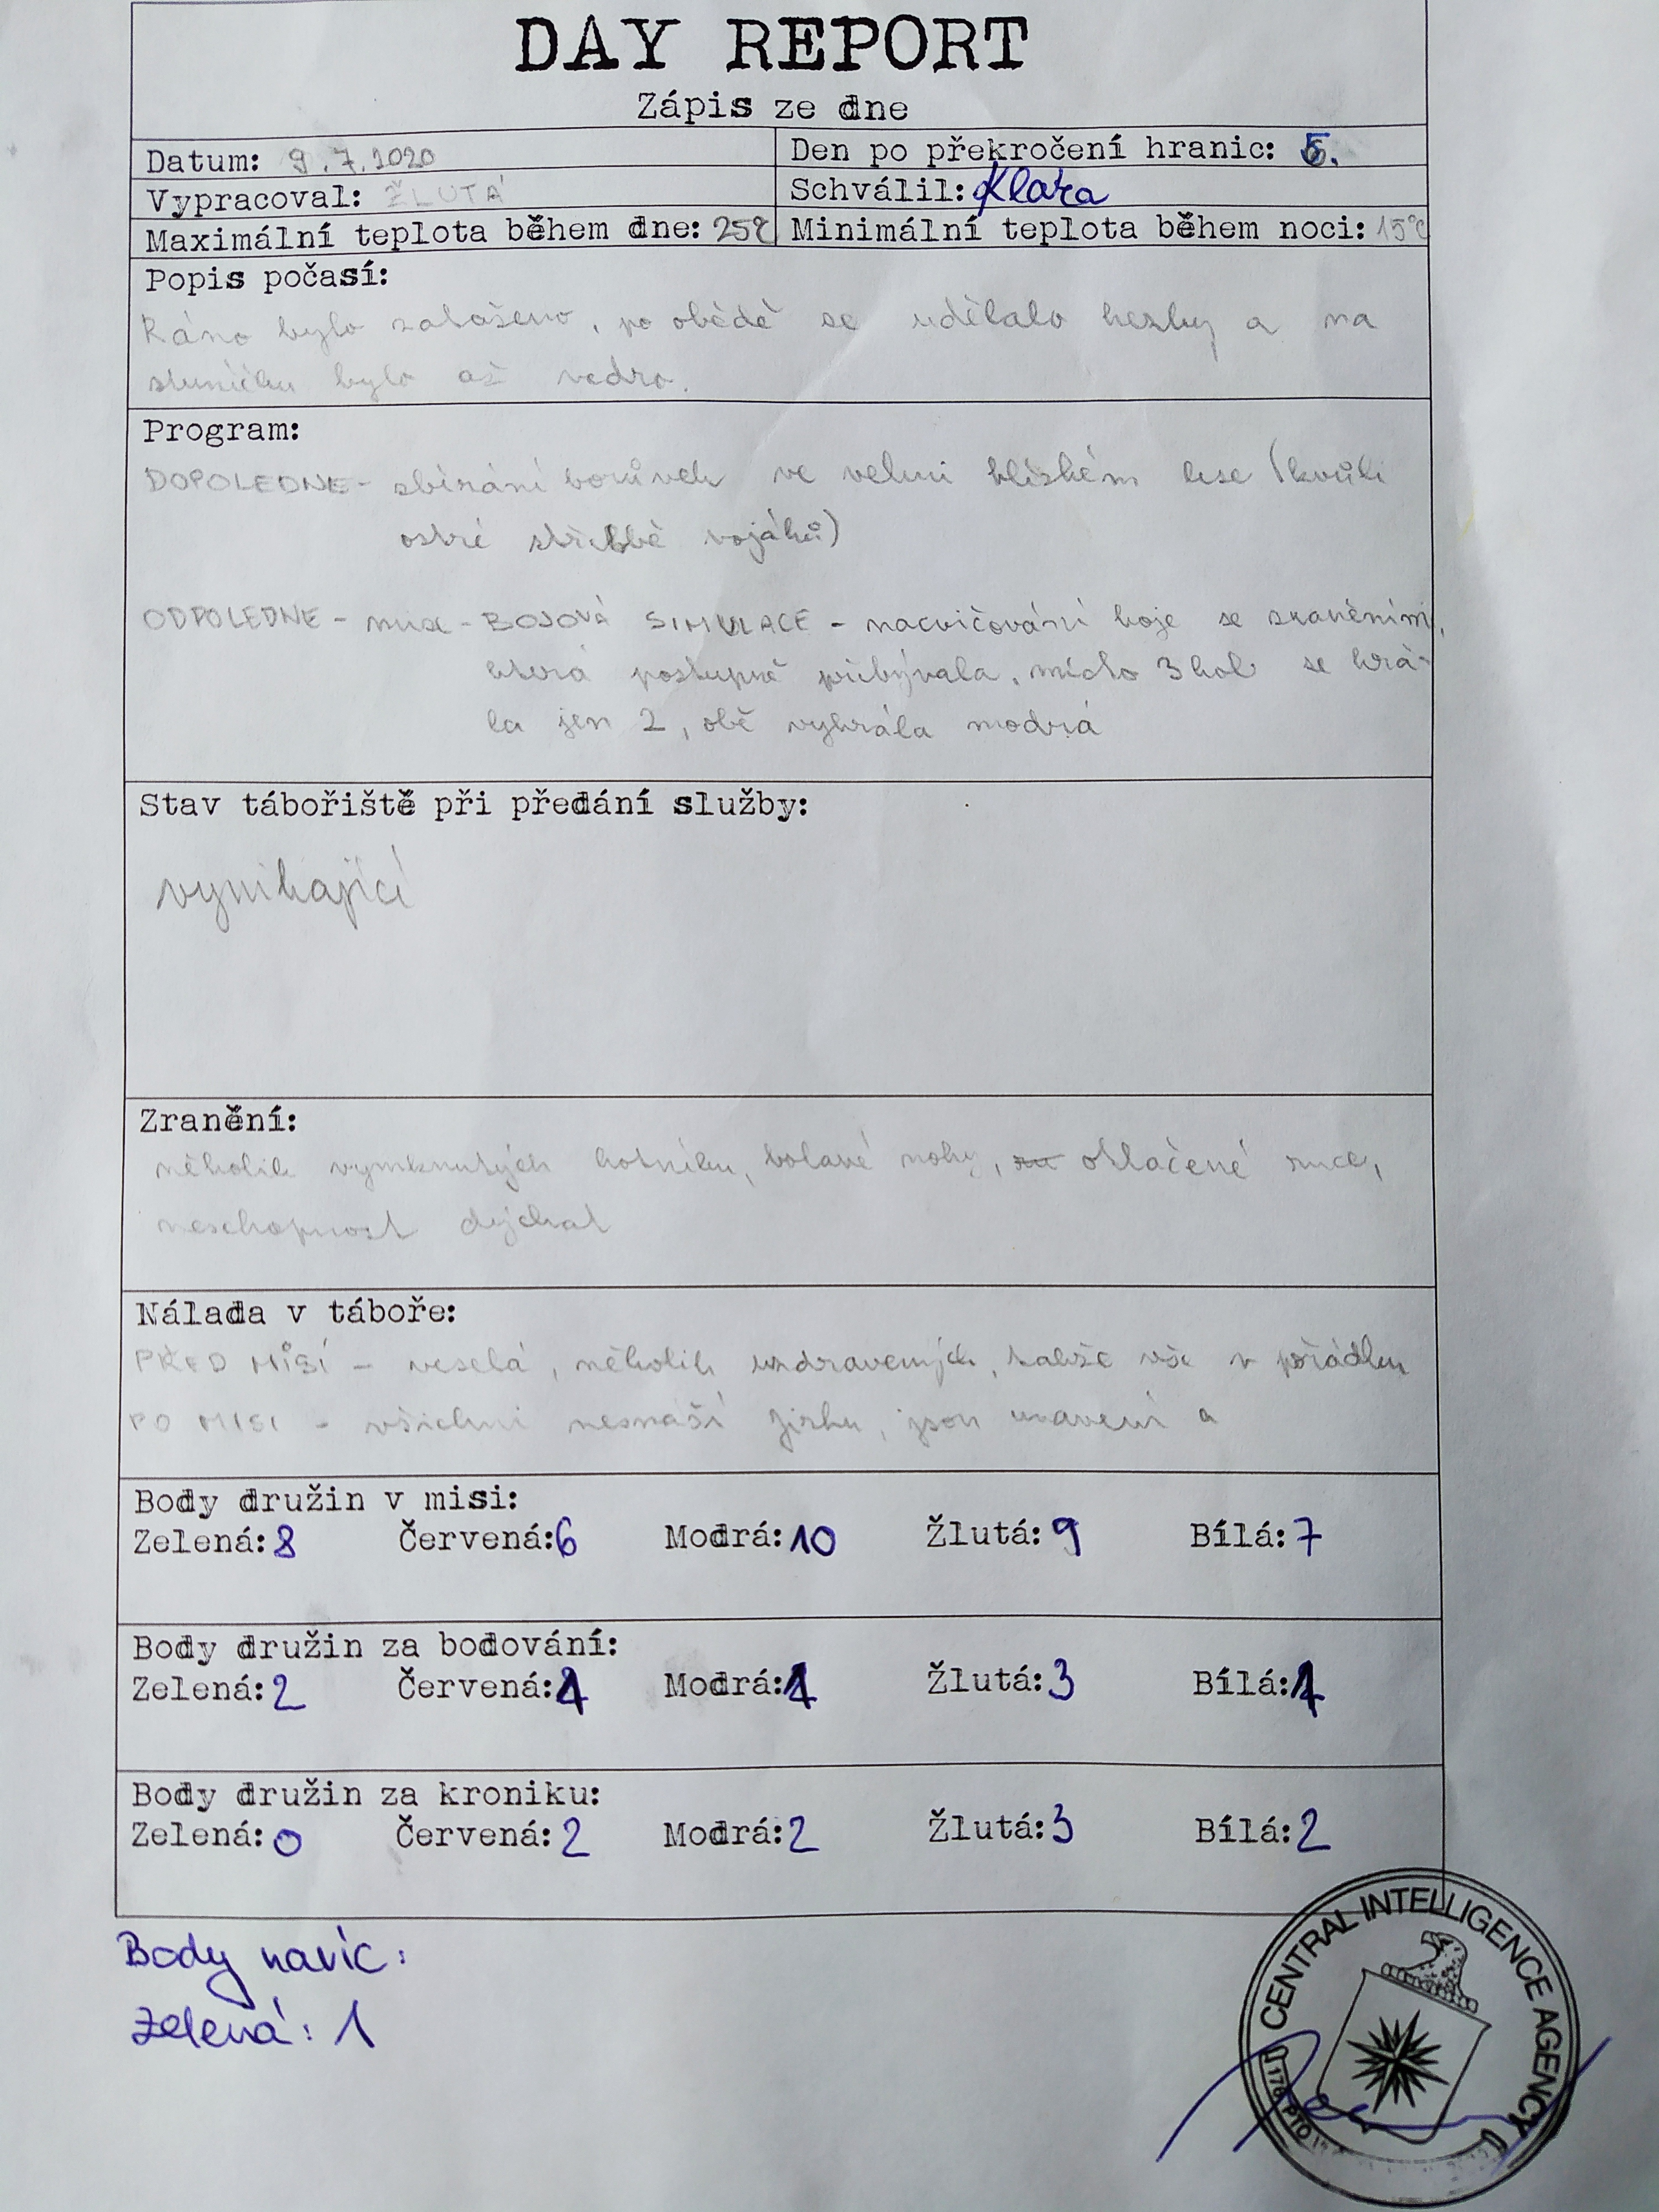 DAY REPORT
Zápis ze dne
Datum: 9.7.2020 Den po překročení hranic: 5.
Vypracoval: ŽLUTÁ Schválil: Klára
Maximální teplota během dne: 25°C Minimální teplota během noci: 15°C
Popis počasí:
Ráno bylo zataženo, po obědě se udělalo hezky a na
sluníčku bylo až vedro.
Program:
DOPOLEDNE - sbírání borůvek ve velmi blízkém lese (kvůli
ostré střelbě vojáků)
ODPOLEDNE - mise - BOJOVÁ SIMULACE - nacvičování boje se zraněními,
která postupně přibývala, místo 3 kol se hrá-
la jen 2, obě vyhrála modrá
Stav tábořiště při předání služby:
vynikající
Zranění:
několik vymknutých kotníku, bolavé nohy, otlačené ruce,
neschopnost dýchat
Nálada v táboře:
PŘED MISÍ - veselá, několik uzdravených, takže vše v pořádku
PO MISI - všichni nesnáší Jirku, jsou unavení a
Body družin v misi:
Zelená: 8 Červená: 6 Modrá: 10 Žlutá: 9 Bílá: 7
Body družin za bodování:
Zelená: 2 Červená: Modrá: Žlutá: 3 Bílá:
Body družin za kroniku:
Zelená: 0 Červená: 2 Modrá: 2 Žlutá: 3 Bílá: 2
Body navíc:
Zelená: 1
CENTRAL INTELLIGENCE AGENCY